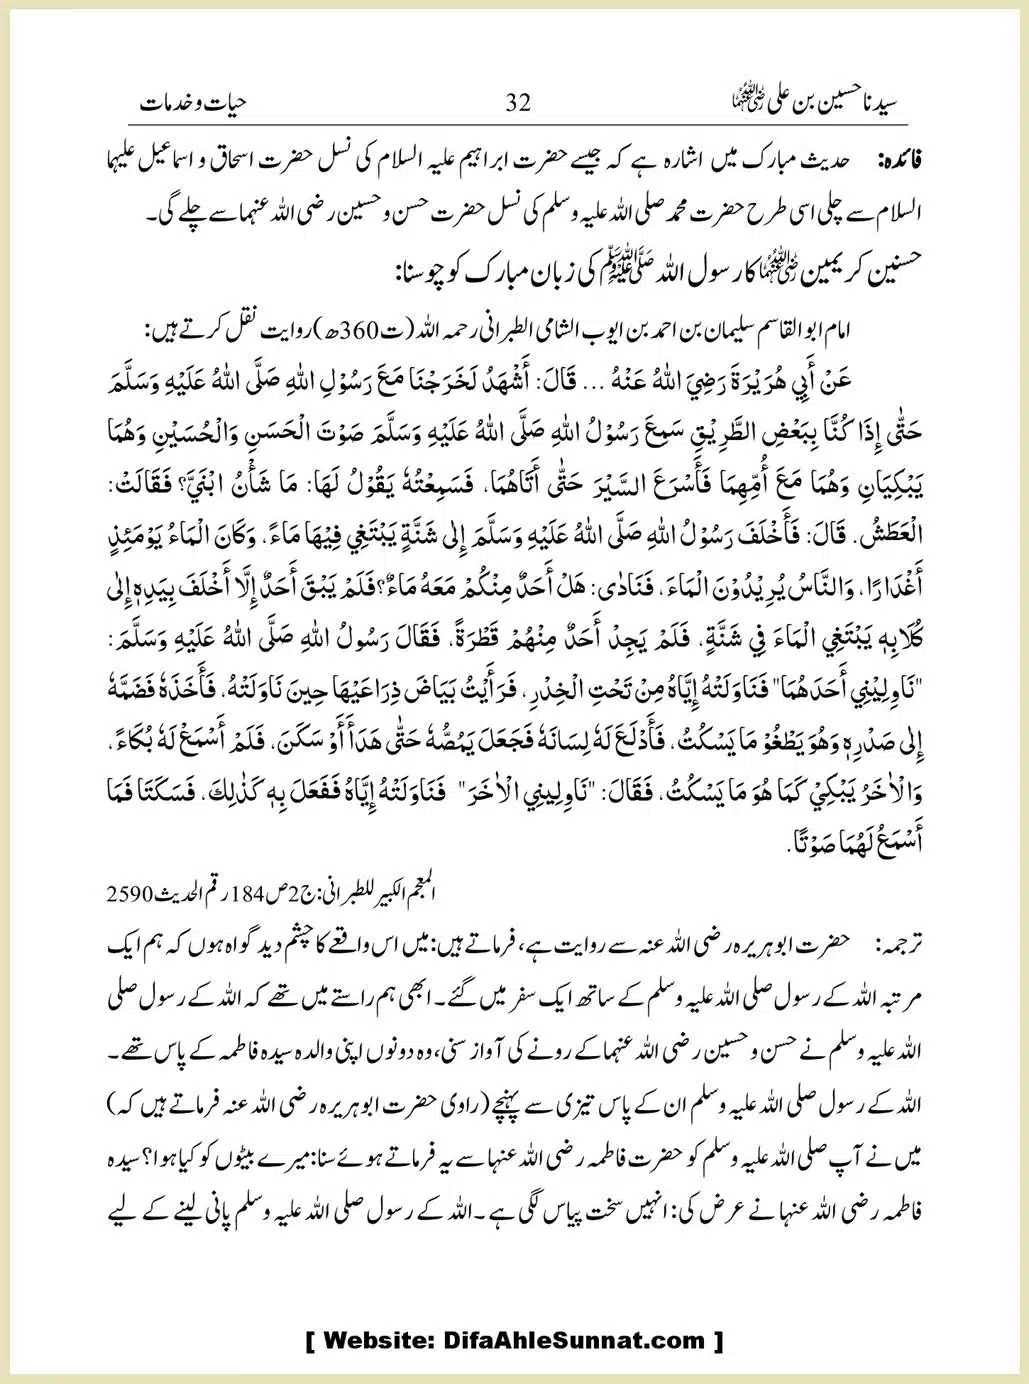 سیدنا حسین بن علی رضی اللہ عنہما 32 حیات و خدمات
فائدہ: حدیث مبارک میں اشارہ ہے کہ جیسے حضرت ابراہیم علیہ السلام کی نسل حضرت اسحاق و اسماعیل علیہما
السلام سے چلی اسی طرح حضرت محمد صلی اللہ علیہ وسلم کی نسل حضرت حسن و حسین رضی اللہ عنہما سے چلے گی۔
حسنین کریمین رضی اللہ عنہما کا رسول اللہ ﷺ کی زبان مبارک کو چوسنا:
امام ابو القاسم سلیمان بن احمد بن ایوب الشامی الطبرانی رحمہ اللہ (ت360ھ) روایت نقل کرتے ہیں:
عَنْ أَبِي هُرَيْرَةَ رَضِيَ اللهُ عَنْهُ ... قَالَ: أَشْهَدُ لَخَرَجْنَا مَعَ رَسُوْلِ اللهِ صَلَّى اللهُ عَلَيْهِ وَسَلَّمَ
حَتّٰى إِذَا كُنَّا بِبَعْضِ الطَّرِيْقِ سَمِعَ رَسُوْلُ اللهِ صَلَّى اللهُ عَلَيْهِ وَسَلَّمَ صَوْتَ الْحَسَنِ وَالْحُسَيْنِ وَهُمَا
يَبْكِيَانِ وَهُمَا مَعَ أُمِّهِمَا فَأَسْرَعَ السَّيْرَ حَتّٰى أَتَاهُمَا، فَسَمِعْتُهٗ يَقُوْلُ لَهَا: مَا شَأْنُ ابْنَيَّ؟ فَقَالَتْ:
الْعَطَشُ. قَالَ: فَأَخْلَفَ رَسُوْلُ اللهِ صَلَّى اللهُ عَلَيْهِ وَسَلَّمَ إِلٰى شَنَّةٍ يَبْتَغِي فِيْهَا مَاءً، وَكَانَ الْمَاءُ يَوْمَئِذٍ
أَغْدَارًا، وَالنَّاسُ يُرِيْدُوْنَ الْمَاءَ، فَنَادٰى: هَلْ أَحَدٌ مِنْكُمْ مَعَهٗ مَاءٌ؟ فَلَمْ يَبْقَ أَحَدٌ إِلَّا أَخْلَفَ بِيَدِهٖ إِلٰى
كُلَابِهٖ يَبْتَغِي الْمَاءَ فِي شَنَّةٍ، فَلَمْ يَجِدْ أَحَدٌ مِنْهُمْ قَطْرَةً، فَقَالَ رَسُولُ اللهِ صَلَّى اللهُ عَلَيْهِ وَسَلَّمَ:
"نَاوِلِيْنِي أَحَدَهُمَا" فَنَاوَلَتْهُ إِيَّاهُ مِنْ تَحْتِ الْخِدْرِ، فَرَأَيْتُ بَيَاضَ ذِرَاعَيْهَا حِيْنَ نَاوَلَتْهُ، فَأَخَذَهٗ فَضَمَّهٗ
إِلٰى صَدْرِهٖ وَهُوَ يَطْغُوْ مَا يَسْكُتُ، فَأَدْلَعَ لَهٗ لِسَانَهٗ فَجَعَلَ يَمُصُّهٗ حَتّٰى هَدَأَ أَوْ سَكَنَ، فَلَمْ أَسْمَعْ لَهٗ بُكَاءً،
وَالْاٰخَرُ يَبْكِيْ كَمَا هُوَ مَا يَسْكُتُ، فَقَالَ: "نَاوِلِينِي الْاٰخَرَ" فَنَاوَلَتْهُ إِيَّاهُ فَفَعَلَ بِهٖ كَذٰلِكَ، فَسَكَتَا فَمَا
أَسْمَعُ لَهُمَا صَوْتًا.
المعجم الکبیر للطبرانی: ج2 ص184 رقم الحدیث 2590
ترجمہ: حضرت ابوہریرہ رضی اللہ عنہ سے روایت ہے، فرماتے ہیں: میں اس واقعے کا چشم دید گواہ ہوں کہ ہم ایک
مرتبہ اللہ کے رسول صلی اللہ علیہ وسلم کے ساتھ ایک سفر میں گئے۔ ابھی ہم راستے میں تھے کہ اللہ کے رسول صلی
اللہ علیہ وسلم نے حسن و حسین رضی اللہ عنہما کے رونے کی آواز سنی، وہ دونوں اپنی والدہ سیدہ فاطمہ کے پاس تھے۔
اللہ کے رسول صلی اللہ علیہ وسلم ان کے پاس تیزی سے پہنچے (راوی حضرت ابوہریرہ رضی اللہ عنہ فرماتے ہیں کہ)
میں نے آپ صلی اللہ علیہ وسلم کو حضرت فاطمہ رضی اللہ عنہا سے یہ فرماتے ہوئے سنا: میرے بیٹوں کو کیا ہوا؟ سیدہ
فاطمہ رضی اللہ عنہا نے عرض کی: انہیں سخت پیاس لگی ہے۔ اللہ کے رسول صلی اللہ علیہ وسلم پانی لینے کے لیے
[ Website: DifaAhleSunnat.com ]